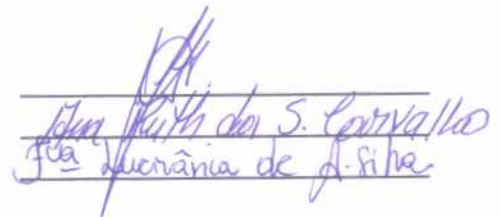 Ana Ruth da S. Carvalho
Fca Lucrânia de A. Silva